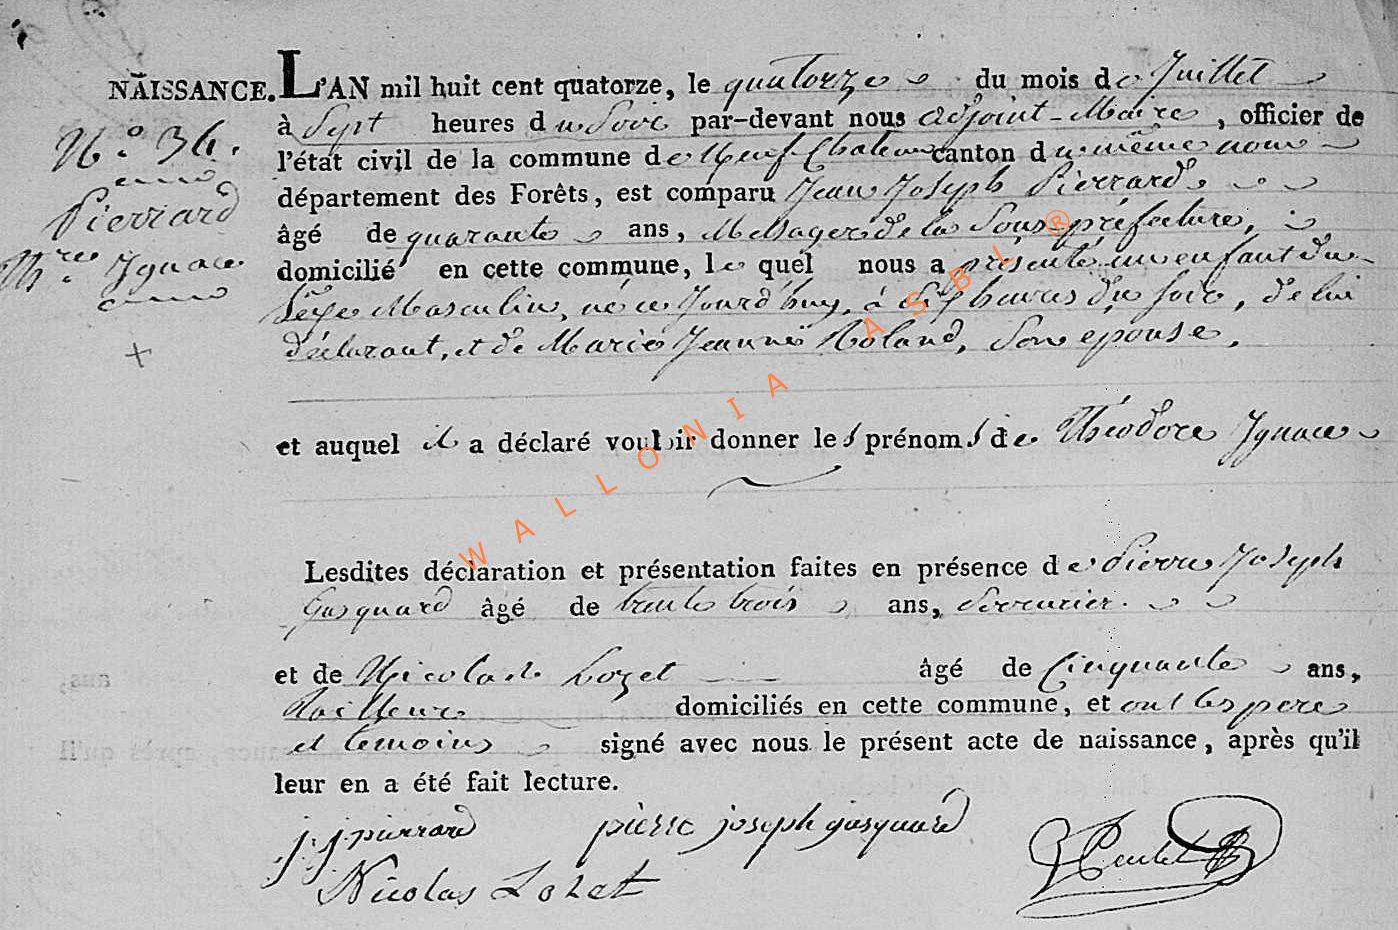 NAISSANCE. L'AN mil huit cent quatorze, le quatorze du mois de Juillet
N.º 36.
à Sept heures du Soir par-devant nous adjoint-Maire, officier de
l'état civil de la commune de Neuf Chateau canton du même nom
Pierrard
département des Forêts, est comparu Jean Joseph Pierrard.
âgé de quarante ans, Messager de la Sous-préfecture,
Ignace
domicilié en cette commune, le quel nous a présenté un enfant du
Sexe Masculin, né ce Jourd'huy, à six heures du soir, de lui
déclarant, et de Marie Jeanne Roland, Son epouse.
+
et auquel il a déclaré vouloir donner les prénoms de Théodore Ignace
Lesdites déclaration et présentation faites en présence de Pierre Joseph
Gasquard âgé de trente trois ans, Serrurier.
et de Nicolas Lozet âgé de Cinquante ans,
Tailleur domiciliés en cette commune, et ont les pere
et temoins signé avec nous le présent acte de naissance, après qu'il
leur en a été fait lecture.
j. j. pierrard pierre joseph gasquard
Nicolas Lozet
WALLONIA ASBL ®